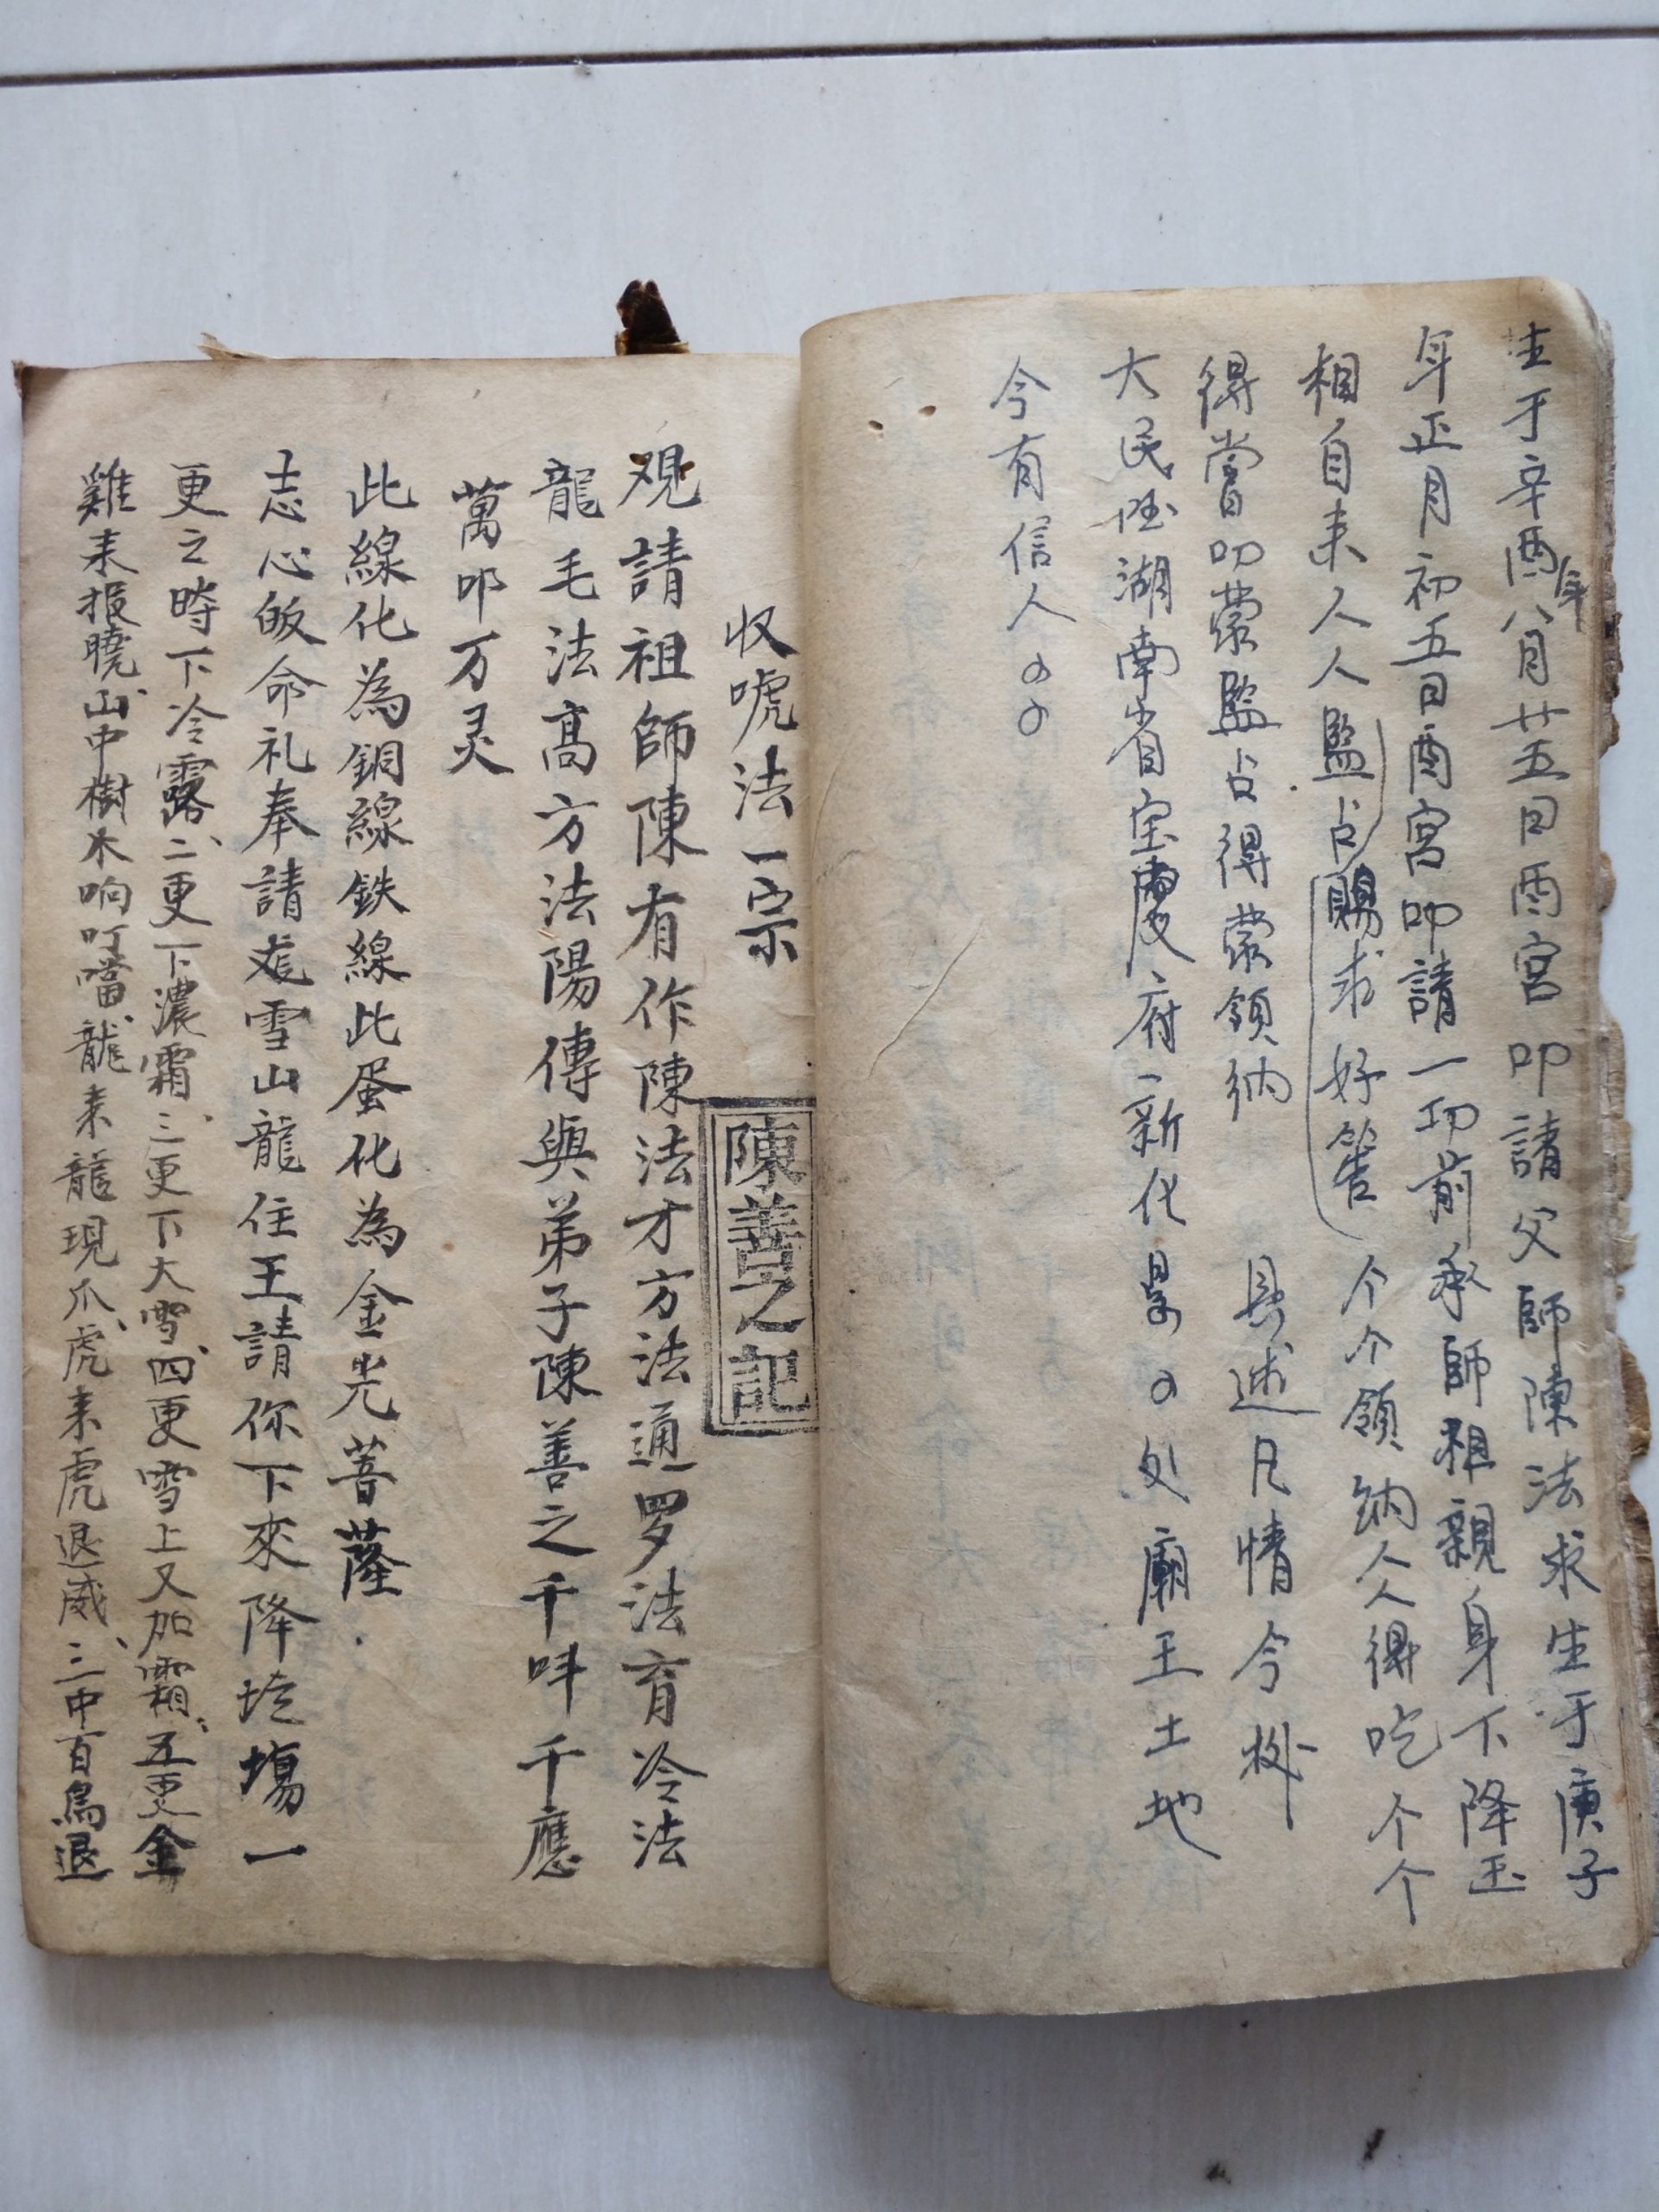 生于辛酉年八月廿五日酉宮叩請父師陳法求生于庚子
年正月初五日酉宮叩請一切前承師祖親身下降玉
相自来人人監占賜求好筶个个領納人人得吃个个
得嘗叩蒙監占得蒙領納 具述凡情今
大民國湖南省宝慶府新化县々处廟王土地
今有信人々々
收唬法一宗
陳善之記
覌請祖師陳有作陳法才方法通罗法育冷法
龍毛法高方法陽傳與弟子陳善之千叫千應
萬叩万灵
此線化為銅線鉄線此蛋化為金光菩薩
志心皈命礼奉請雪山龍住王請你下來降坛塲一
更之時下冷露二更下濃霜三更下大雪四更雪上又加霜五更金
雞来报曉山中樹木响叮噹龍来龍現爪虎来虎退威三中百鳥退